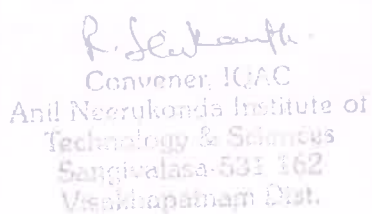 R. Srikanth
Convener, IQAC
Anil Neerukonda Institute of
Technology & Sciences
Sangivalasa-531 162
Visakhapatnam Dist.